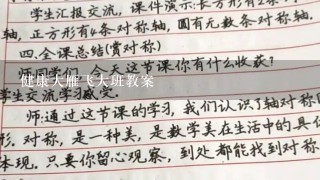 学生汇报交流，课件演示:长方形有2条
轴，正方形有4条对称轴，圆有无数条对称轴.
四.全课总结(赏对称)
今天这节课你有什么收获?
健康大雁飞大班教案
学生交流学习感受.
师:通过这节课的学习，我们认识了轴对称
形.对称，是一种美，是数学美在生活中的具
体现.只要你留心观察，到处都能找到对称